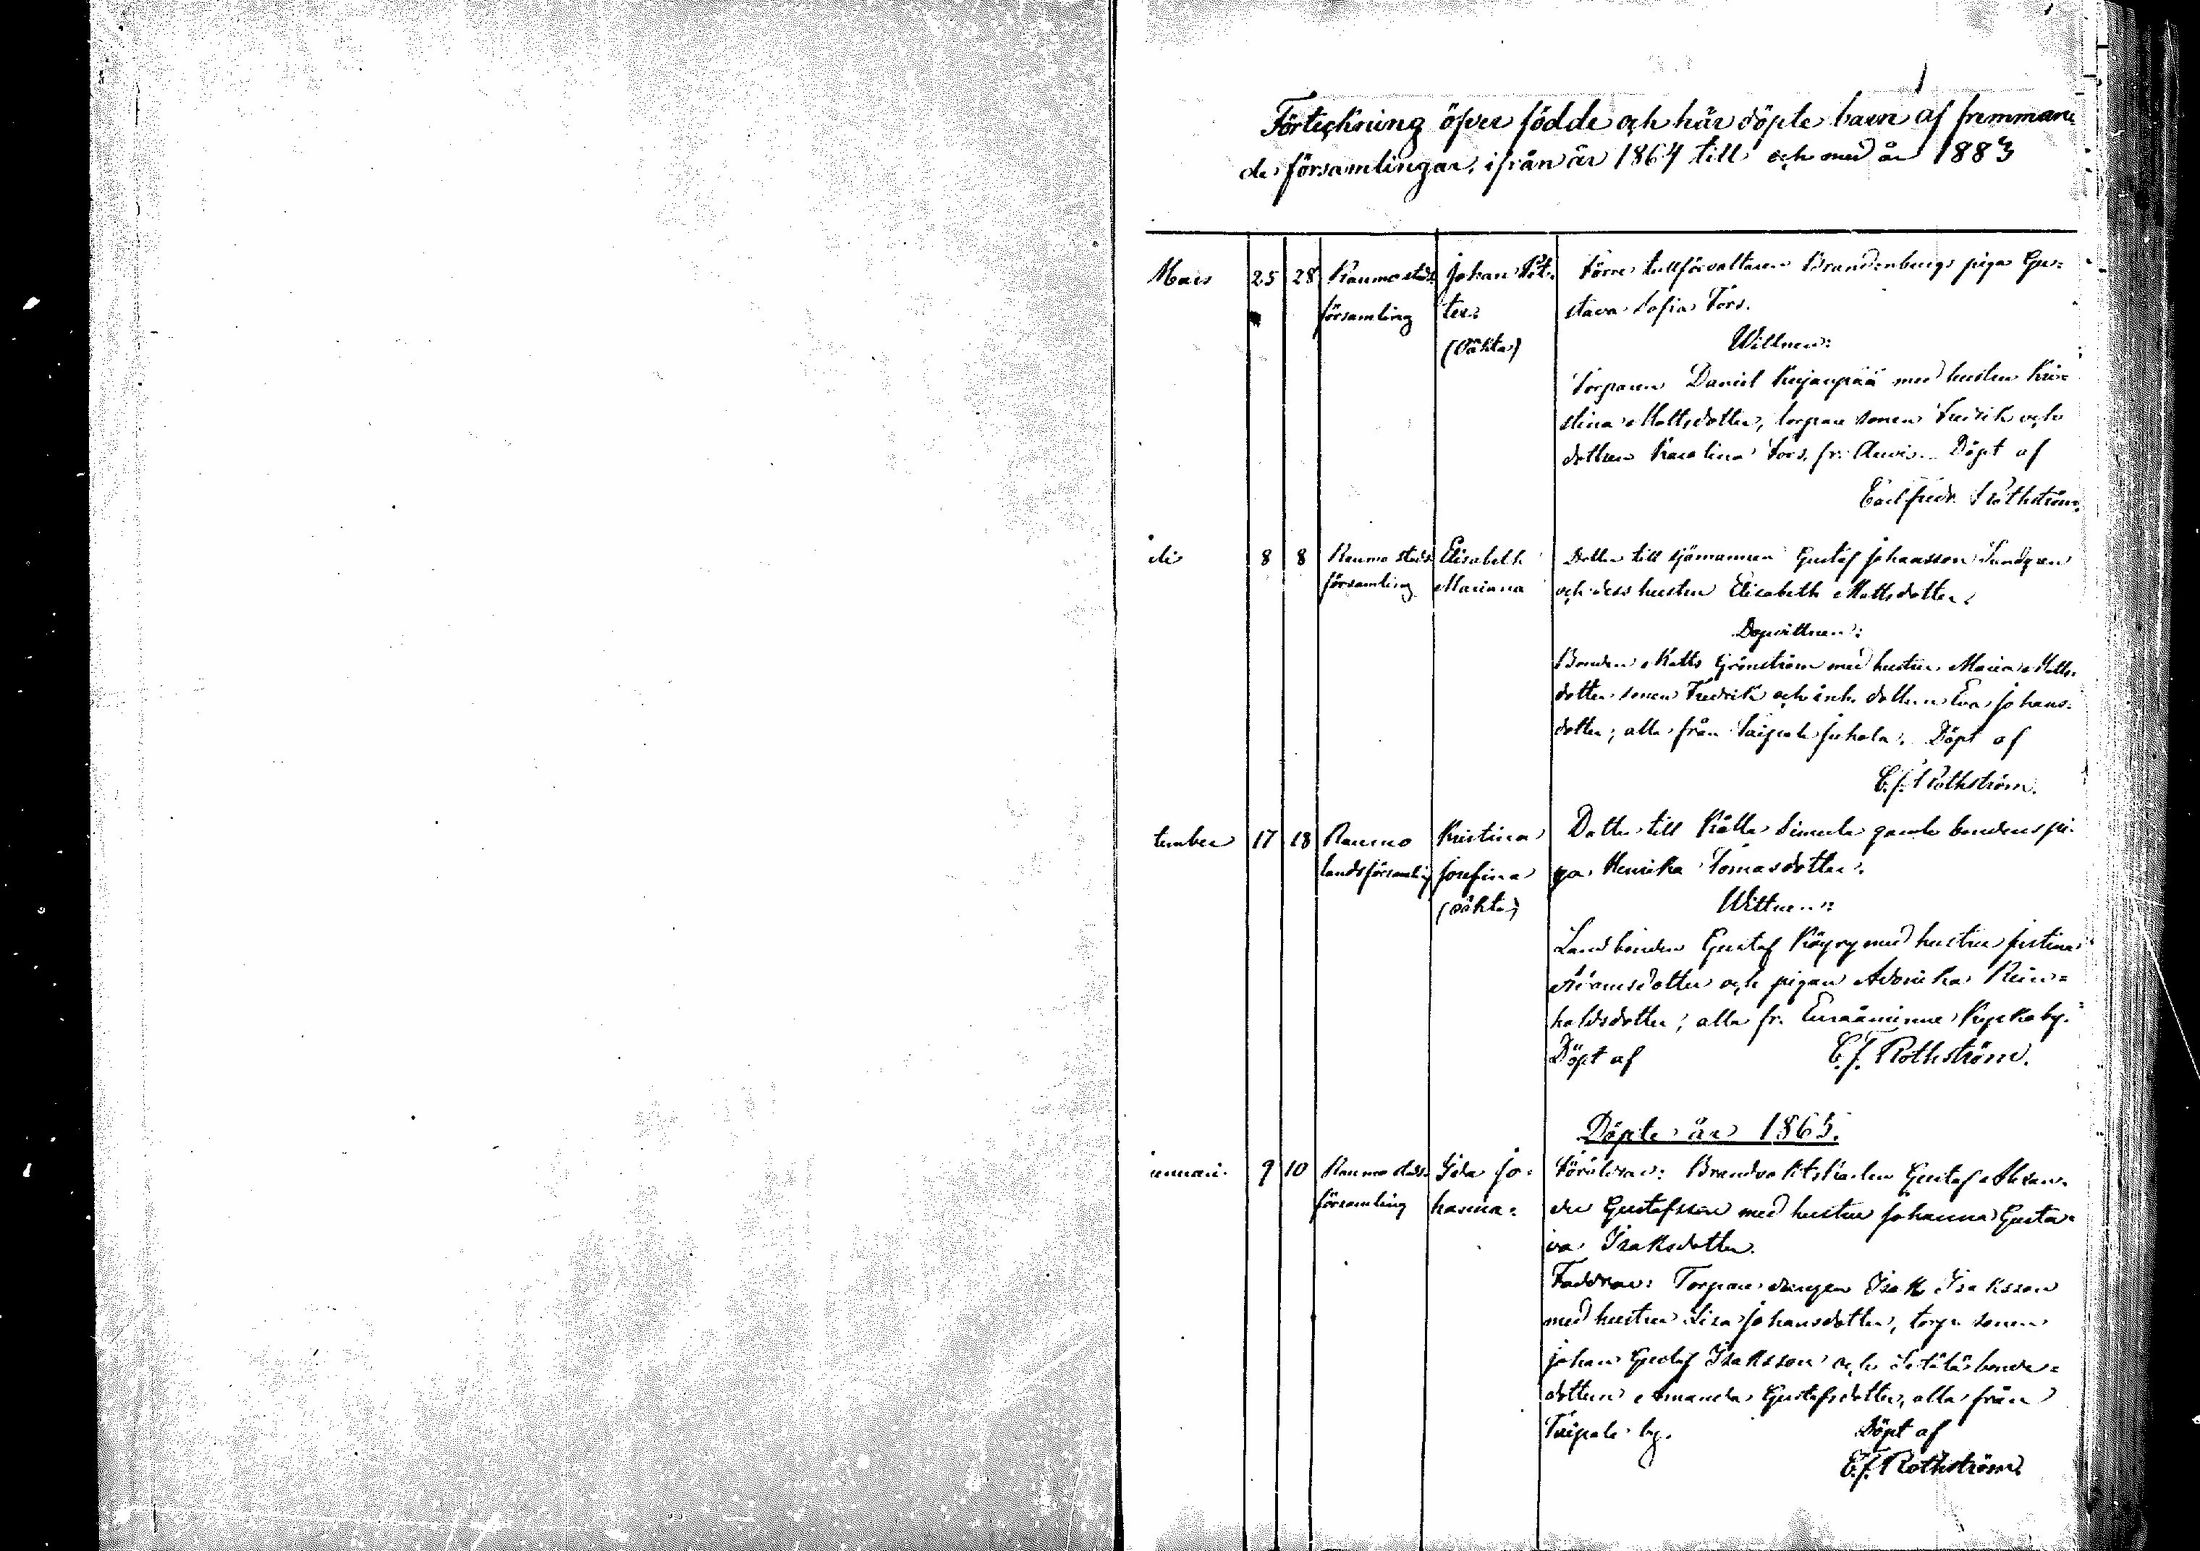 1
Förteckning öfver födde och här döpte barn af fremman
de församlingar, ifrån år 1864 till och med år 1883
Mars 25 28 Raumo stads Johan Pet- Förre tullförvaltaren Brandenburgs piga Gu-
församling ter. stava Sofia Fors.
(oäkta) Wittnen:
Torparen Daniel Kujanpää med hustru Kri-
stina Mattsdotter, torpare sonen Fredrik och
dottren Karolina Fors, fr. Döpt af
Carl Fredr. Rothström.
8 8 Raumo stads Elisabeth Dotter till sjömannen Gustaf Johansson Lundgren
församling Mariana och dess hustru Elisabeth Mattsdotter.
Dopvittnen:
Bonden Matts Grönström med hustru Maria Matts-
dotter sonen Fredrik och inh. dottern Eva Johans-
dotter; alla från Taipale Juhola. Döpt af
C. f. Rothström.
tember 17 18 Raumo Kristina Dotter till Simula gamle bondens pi-
landsförsamling Josefina ga Henrika Tomasdotter.
(oäkta) Wittnen:
Landbonden Gustaf Köyry med hustru Justina
Adamsdotter och pigan Adorika Rein-
holdsdotter; alla fr. Euraåminne Kyrkoby.
Döpt af C. f. Rothström.
Döpte år 1865.
januari. 9 10 Raumo stads Ida Jo- Föräldrar: Brandvaktskarlen Gustaf Alexan-
församling hanna. der Gustafsson med hustru Johanna Gusta-
va Isaksdotter.
Faddrar: Torpare drengen Isak Isaksson
med hustru Lisa Johansdotter, torp. sonen
Johan Gustaf Isaksson och bonde-
dottern Amanda Gustafsdotter, alla från
Taipale by. Döpt af
C. f. Rothström.